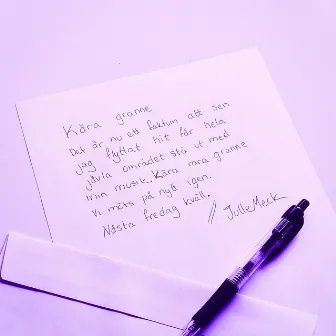 Kära granne
Det är nu ett faktum att sen
jag flyttat hit får hela
jävla området stå ut med
min musik. Kära mra granne
Vi möts på nytt igen.
Nästa fredag kväll.
// JulleMeck